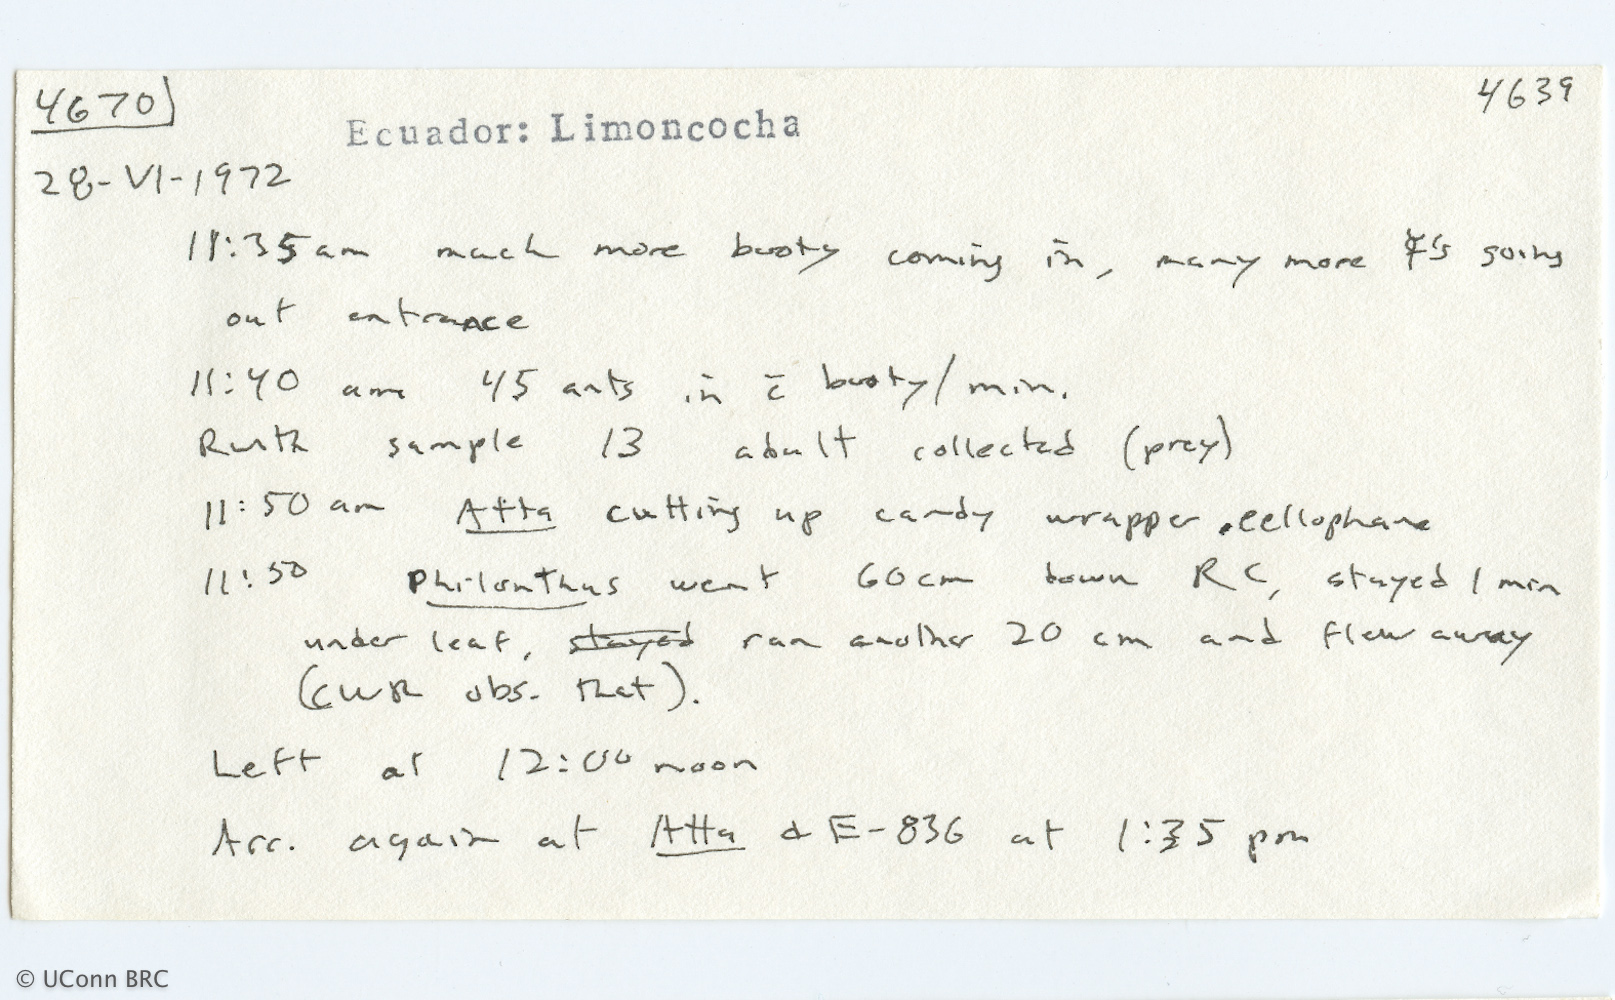 4670
4639
Ecuador: Limoncocha
28-VI-1972
11:35 am much more booty coming in, many more ☿'s going
out entrance
11:40 am 45 ants in c̄ booty/min.
Ruth sample 13 adult collected (prey)
11:50 am Atta cutting up candy wrapper cellophane
11:50 Philonthus went 60cm down RC, stayed 1 min
under leaf, stayed ran another 20 cm and flew away
(CWR obs. that).
Left at 12:00 noon
Arr. again at Atta & E-836 at 1:35 pm
© UConn BRC